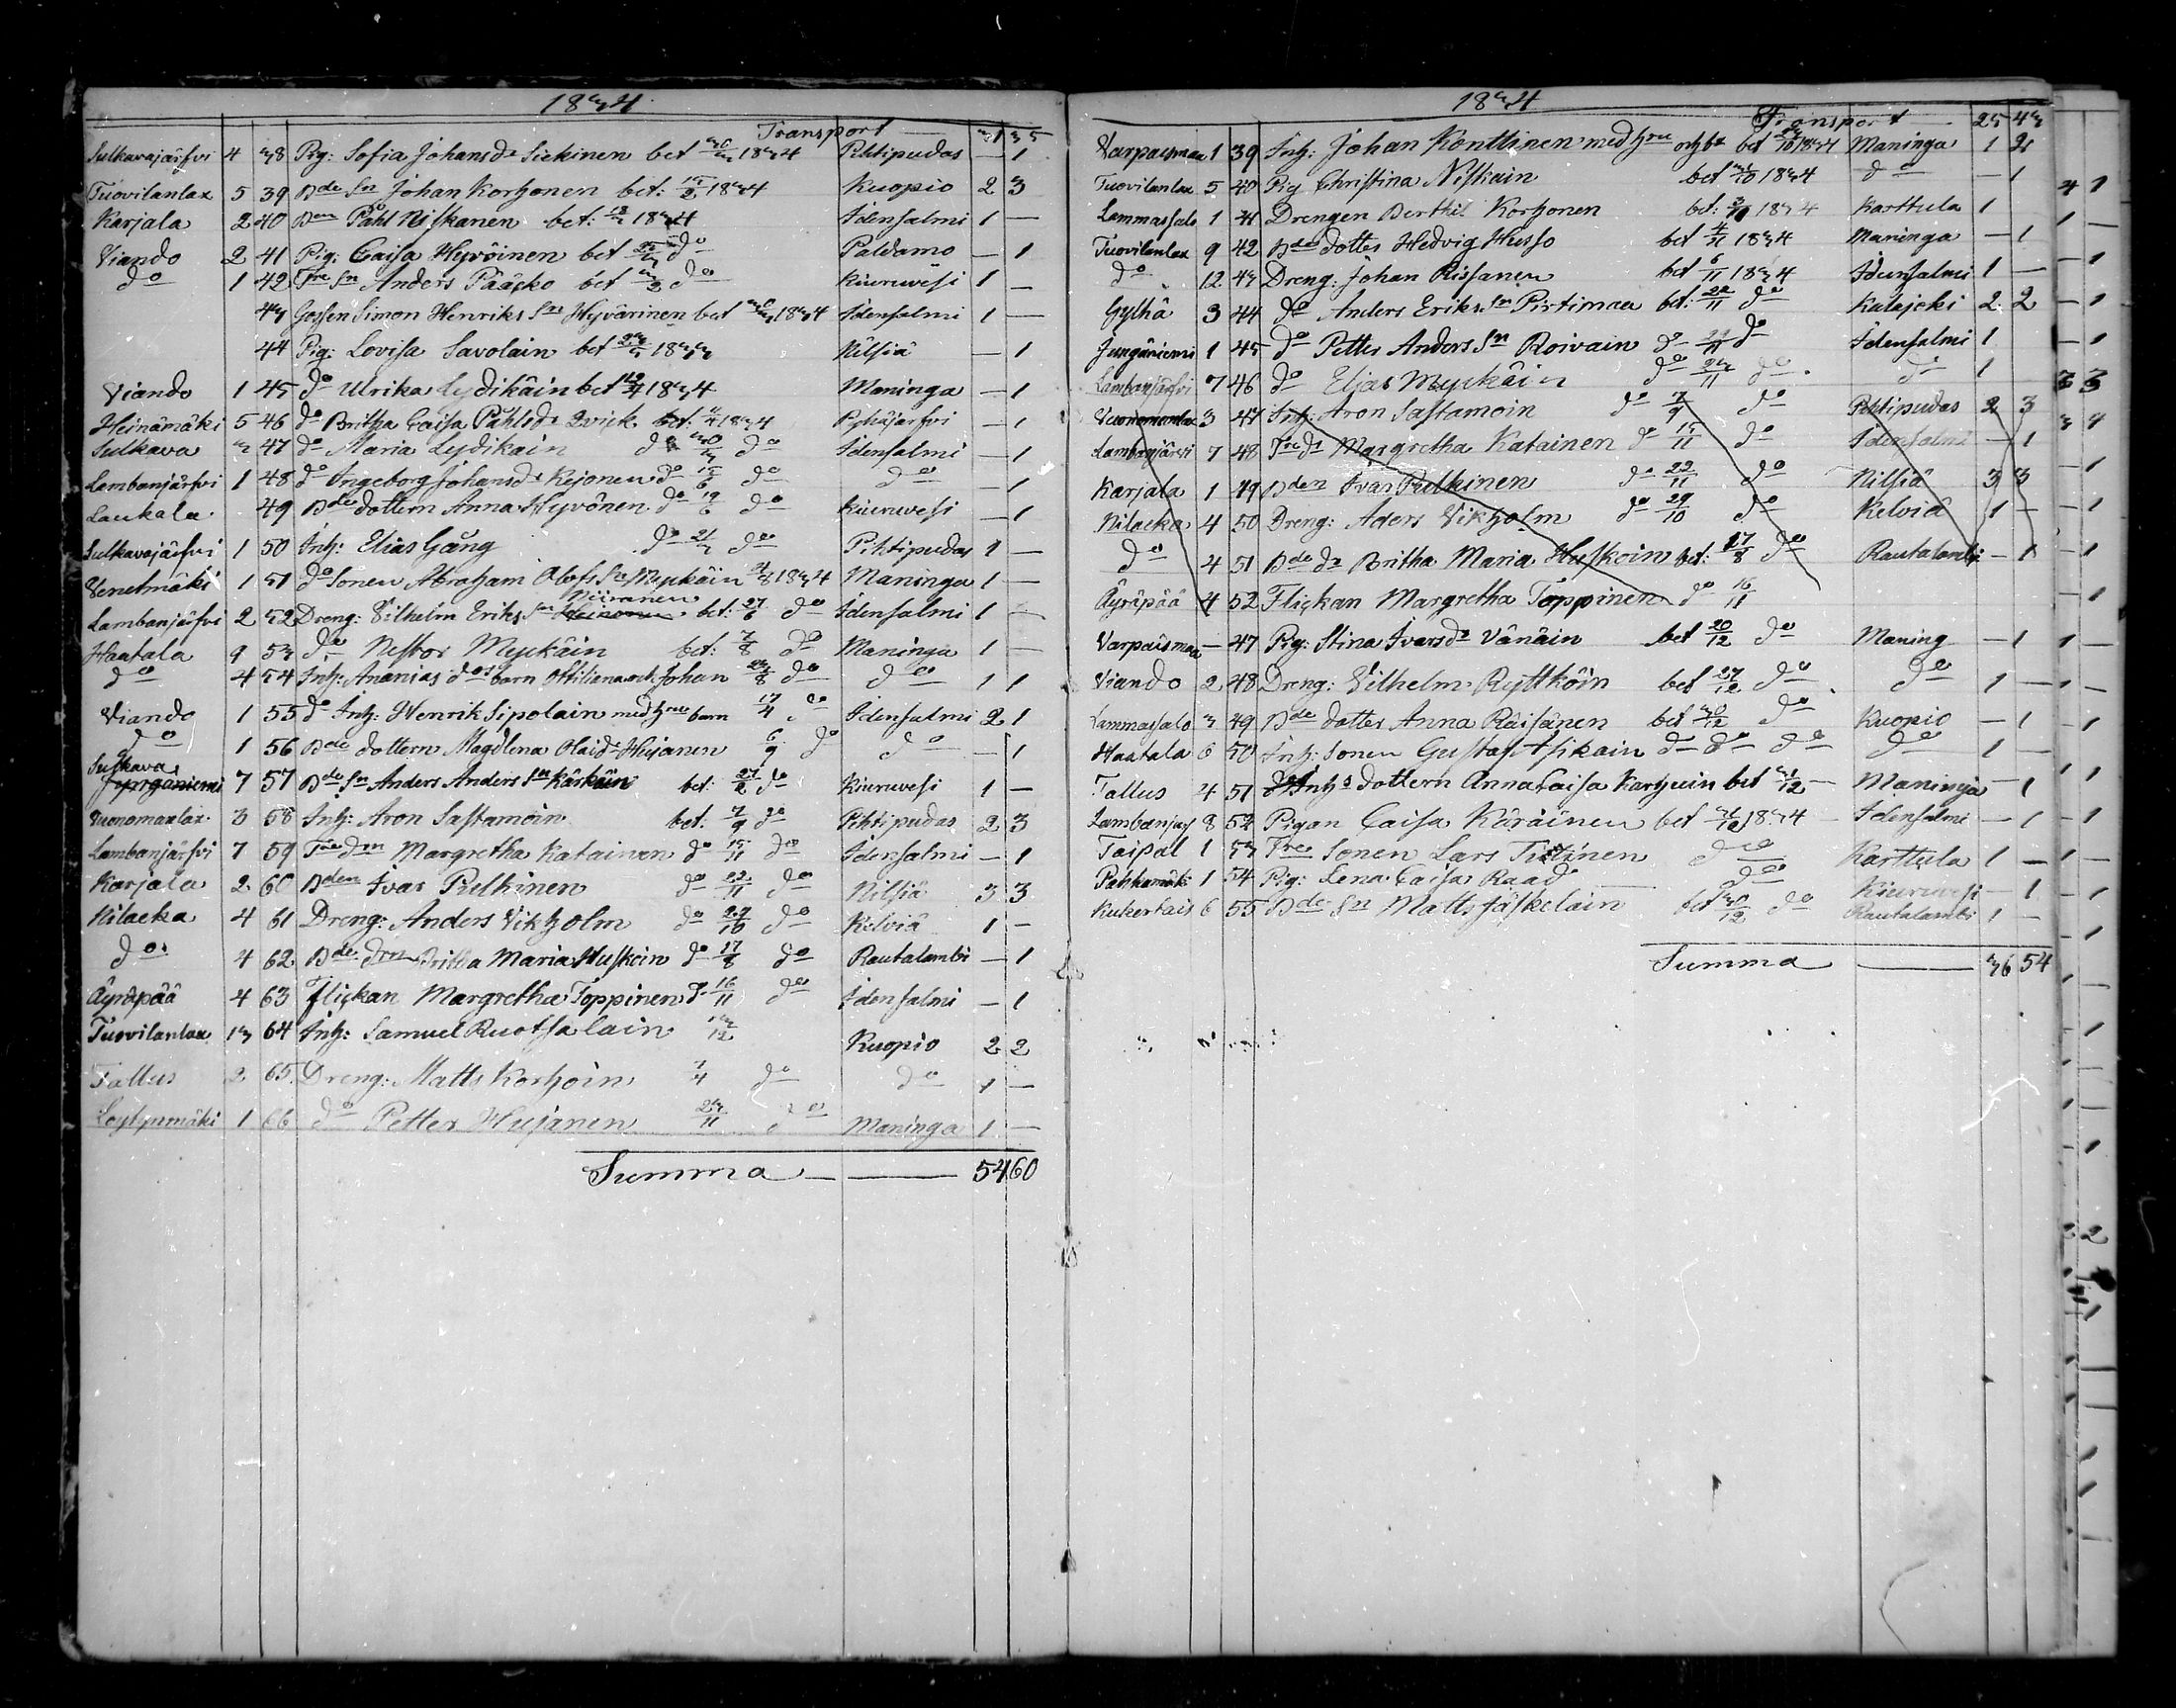 1834
Transport — 31 35
Sulkavajärfvi 4 38 Pig: Sofia Johansdr Siekinen bet 30/3 1834 Pihtipudas — 1
Tuovilanlax 5 39 Bde Sn Johan Korhonen bet: 15/2 1834 Kuopio 2 3
Karjala 2 40 Bon Påhl Niskanen bet: 18/3 1834 Idensalmi 1 —
Viando 2 41 Pig: Caisa Hyvöinen bet 25/3 do Paldamo — 1
do 1 42 Tre Sn Anders Pääcko bet 3/3 do Kiuruvesi 1 —
43 Gossen Simon Henriks Sn Hyvärinen bet 30/3 1834 Idensalmi 1 —
44 Pig: Lovisa Savolain bet 1833 Nilsiä — 1
Viando 1 45 do Ulrika Lydikäin bet 12/4 1834 Maninga — 1
Heinämäki 5 46 do Britha Caisa Påhlsdr Qvick bet: 1834 Pyhäjärfvi — 1
Sulkava 3 47 do Maria Lydikain do 30/3 do Idensalmi — 1
Lambanjärfvi 1 48 do Ingeborg Johansdr Rejonen do 15/6 do do — 1
Laukala 49 Bde dottern Anna Hyvönen do 19/6 do Kiuruvesi — 1
Sulkavajärfvi 1 50 Inh: Elias Gång do 21/3 do Pihtipudas 1 —
Venetmäki 1 51 do Sonen Abraham Olofs Sn Myckäin 1834 Maninga 1 —
Niiranen
Lambanjärfvi 2 52 Dreng: Vilhelm Eriks Sn Heinonen bet: 27/6 do Idensalmi 1 —
Haatala 9 53 do Nestor Myckäin bet: 7/8 do Maninga 1 —
do 4 54 Inh: Ananias dos barn Ottiliana och Johan 23/8 do do 1 1
Viando 1 55 do Inh: Henrik Sipolain med hru barn 17/4 do Idensalmi 2 1
do 1 56 Bde dottern Magdlena Olaidr Hujanen 6/9 do do — 1
Sulkava
Jyrgäniemi 7 57 Bde Sn Anders Anders Sn Kärkäin bet: 27/2 do Kiuruvesi 1 —
Vuonomanlax 3 58 Inh: Aron Sastamoin bet: 7/9 do Pihtipudas 2 3
Lambanjärfvi 7 59 Tre drn Margretha Katainen do 15/11 do Idensalmi — 1
Karjala 2 60 Bden Ivar Pulkinen do 22/11 do Nilsiä 3 3
Nilacka 4 61 Dreng: Anders Vikholm do 29/10 do Kelviå 1 —
do 4 62 Bde drn Britha Maria Huskoin do 17/8 do Rautalambi — 1
Äyräpää 4 63 Flickan Margretha Toppinen do 16/11 do Idensalmi — 1
Tuovilanlax 13 64 Inh: Samuel Ruotsalain 13/12 Kuopio 2 2
Tallus 2 65 Dreng: Matts Korhoin 7/4 do do 1 —
Löytynmäki 1 66 do Petter Hujanen 23/11 do Maninga 1 —
Summa — 54 60
1834
Transport — 25 43
Varpaismaa 1 39 Inh: Johan Konttinen med hru och br bet 1834 Maninga 1 2
Tuovilanlax 5 40 Pig Christina Niskain bet 1834 do — 1
Lammassalo 1 41 Drengen Berthil Korhonen bet: 1834 Karttula 1
Tuovilanlax 9 42 Bdes dotter Hedvig Husso bet 4/11 1834 Maninga — 1
do 12 43 Dreng: Johan Rissanen bet 6/11 1834 Idensalmi 1 —
Gylhä 3 44 do Anders Eriks Sn Pirtimaa bet: 22/11 do Kalajoki 2 2
Jyngäniemi 1 45 do Petter Anders Sn Roivain do 29/11 do Idensalmi 1
Lambanjärfvi 7 46 do Elias Myckäin do 23/11 do do 1
Vuonomanlax 3 47 Inh: Aron Sastamoin do 7/9 do Pihtipudas 2 3
Lambanjärfvi 7 48 Tre dr Margretha Katainen do 15/11 do Idensalmi — 1
Karjala 1 49 Bden Ivar Pulkinen do 22/11 do Nilsiä 3 3
Nilacka 4 50 Dreng: Aders Vikholm do 29/10 do Kelviå 1 —
do 4 51 Bde dr Britha Maria Huskoin bet: 17/8 do Rautalambi — 1
Äyräpää 4 52 Flickan Margretha Toppinen do 16/11
Varpaismaa — 47 Pig: Stina Ivarsdr Vänäin bet 20/12 do Maning — 1
Viando 2 48 Dreng: Vilhelm Ryttköin bet 27/12 do do 1 —
Lammassalo 3 49 Bde dotter Anna Räisänen bet 30/12 do Kuopio — 1
Haatala 6 50 Inh: Sonen Gustaf Asikain do do do do 1 —
Tallus 4 51 Inhs dottern Anna Caisa Karhuin bet 31/12 — Maninga — 1
Lambanjärf 8 52 Pigan Caisa Käräinen bet 31/12 1834 Idensalmi — 1
Taipal 1 53 Tre Sonen Lars Tistinen do Karttula 1 —
Pahkamäki 1 54 Pig: Lena Caisa Raad do Kiuruvesi — 1
Kukertais 6 55 Bde Sn Matts Jäskeläin bet 30/12 do Rautalambi 1 —
Summa — 36 54